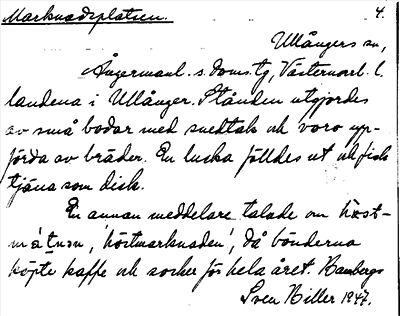 Marknadsplatsen. 4.
Ullångers sn,
Ångermanl. s. doms.tg, Västernorrl. l.
landena i Ullånger. Stånden utgjordes
av små bodar med snedtak och voro upp-
förda av bräder. En lucka fälldes ut och fick
tjäna som disk.
En annan meddelare talade om höst-
mátnsn, 'höstmarknaden', då bönderna
köpte kaffe och socker för hela året. Bambergs
Sven Biller 1947.